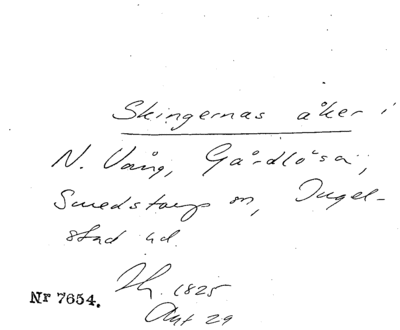 Skingernas åker i
N. Vång, Gårdlösa,
Smedstorp sn, Ingel-
stad hd.
1825
Nr 7654.
Akt 29